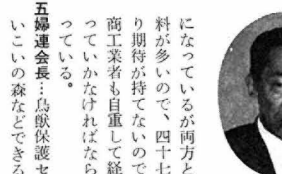 になっているが両方と
料が多いので、四十七
り期待が持てないので
商工業者も自重して経
っていかなければなら
っている。
五婦連会長…鳥獣保護セ
いこいの森などできる